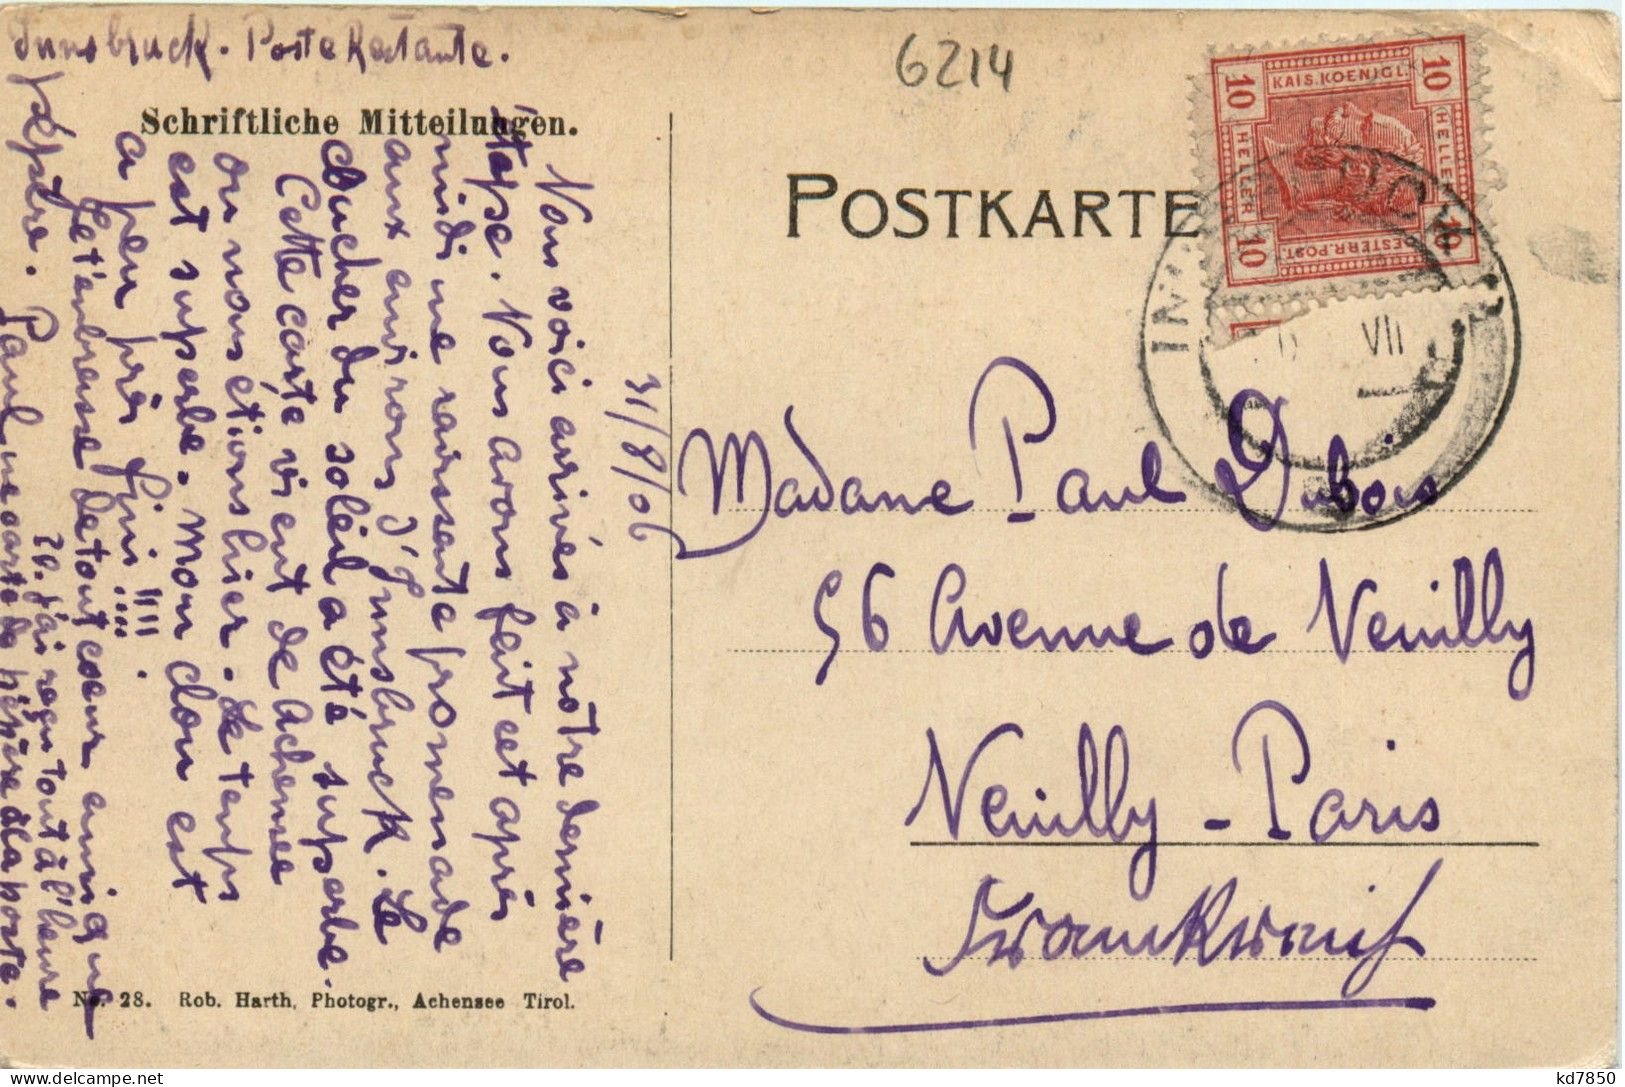 Innsbruck. Poste Restante.
6214
Schriftliche Mitteilungen.
POSTKARTE
KAIS. KOENIGL.
OESTERR. POST.
HELLER HELLER
10 10 10 10
INNSBRUCK
VII
31/8/06
Nous voici arrivés à notre dernière
étape. Nous avons fait cet après
midi une ravissante promenade
aux environs d'Innsbruck. Le
coucher du soleil a été superbe.
Cette carte vient de Achensee
où nous étions hier. Le temps
est superbe. Mon clou est
à peu près fini !!!!
Je t'embrasse de tout cœur
P.S. J'ai reçu tout à l'heure
Madame Paul Dubois
56 Avenue de Neuilly
Neuilly - Paris
Frankreich
No. 28. Rob. Harth, Photogr., Achensee Tirol.
kd7850